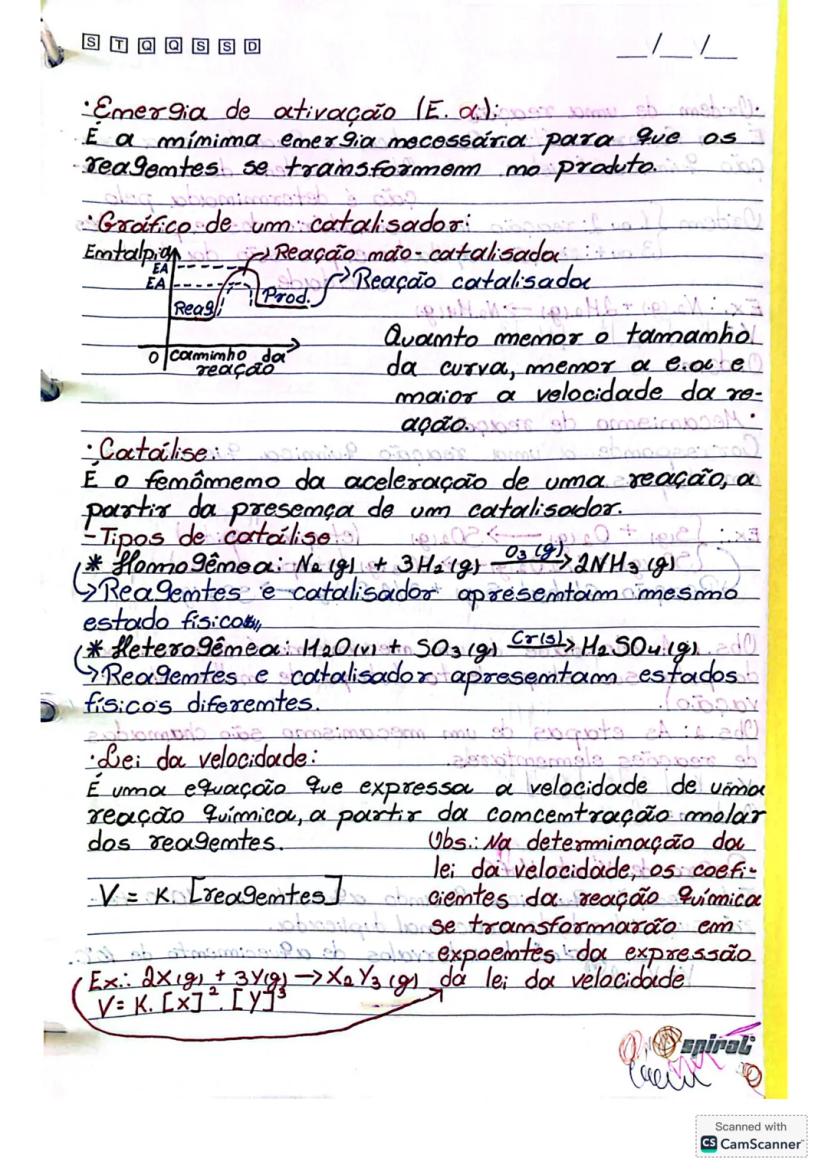 S T Q Q S S D __/__/__
·Energia de ativação (E.a):
É a mínima energia necessária para que os
reagentes se transformem no produto.
·Gráfico de um catalisador:
Entalpia
Reação não-catalisada
EA
EA
Reação catalisada
Reag.
Prod.
0 caminho da
reação
Quanto menor o tamanho
da curva, menor a e.a e
maior a velocidade da re-
ação.
·Catálise:
É o fenômeno da aceleração de uma reação, a
partir da presença de um catalisador.
-Tipos de catálise
* Homogênea: N₂(g) + 3H₂(g) O₃(g)→ 2NH₃(g)
↳Reagentes e catalisador apresentam mesmo
estado físico
* Heterogênea: H₂O(v) + SO₃(g) Cr(s)→ H₂SO₄(g)
↳Reagentes e catalisador apresentam estados
físicos diferentes.
·Lei da velocidade:
É uma equação que expressa a velocidade de uma
reação química, a partir da concentração molar
dos reagentes.
V = K.[reagentes]
Obs.: Na determinação da
lei da velocidade, os coefi-
cientes da reação química
se transformarão em
expoentes da expressão
da lei da velocidade
Ex.: 2X(g) + 3Y(g) → X₂Y₃(g)
V = K.[X]².[Y]³
spiral
Scanned with
CS CamScanner